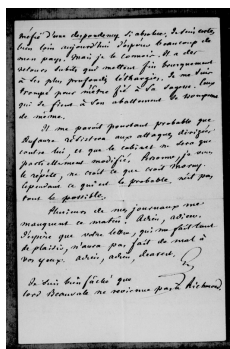 méfié d'une despondency si absolue. Je suis certes
bien loin aujourd'hui d'espérer beaucoup de
mon pays. Mais je le connais. Il a des
retours subits qui mettent fin brusquement
à ses plus profondes léthargies. Je me suis
trompé pour m'être fié à sa sagesse. Ceux
qui se fient à son abattement se trompent
de même.
Il me paroit pourtant probable que
Dufaure résistera aux attaques dirigées
contre lui et que le cabinet ne sera que
partiellement modifié. Personne, je vous
le répète, ne croit ce que croit
Cependant ce qui est le probable, n'est pas
tout le possible.
Plusieurs de mes journaux me
manquent ce matin. Adieu, adieu.
J'espère que votre lettre, qui me fait tant
de plaisir, n'aura pas fait de mal à
vos yeux. Adieu, adieu, dearest.
Je suis bien fâché que
lord Beauvale ne revienne pas à Richmond.